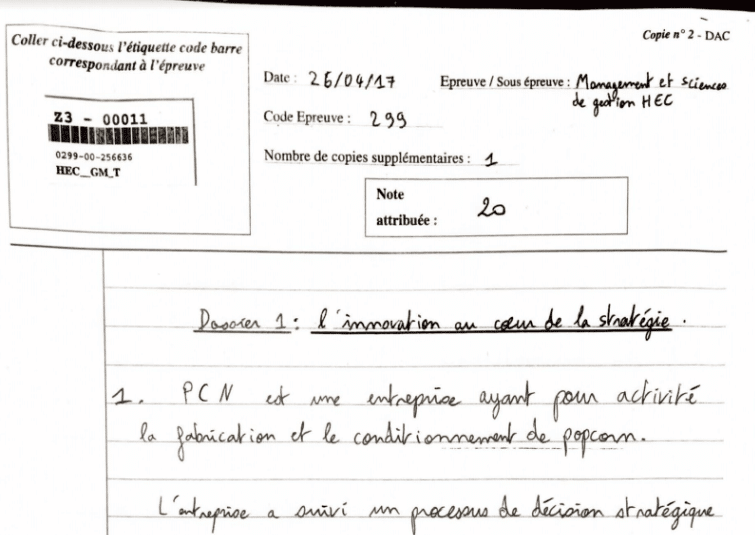 Copie n° 2 - DAC
Coller ci-dessous l'étiquette code barre
correspondant à l'épreuve
Z3 - 00011
0299-00-256636
HEC_GM_T
Date : 26/04/17
Epreuve / Sous épreuve : Management et sciences
de gestion HEC
Code Epreuve : 299
Nombre de copies supplémentaires : 1
Note
attribuée : 20
Dossier 1 : l'innovation au cœur de la stratégie.
1. PCN est une entreprise ayant pour activité
la fabrication et le conditionnement de popcorn.
L'entreprise a suivi un processus de décision stratégique